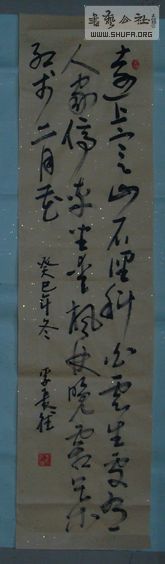 遠上寒山石徑斜白雲生處有
人家停車坐愛楓林晚霜葉
紅於二月花 癸巳年冬
書藝公社
WWW.SHUFA.ORG